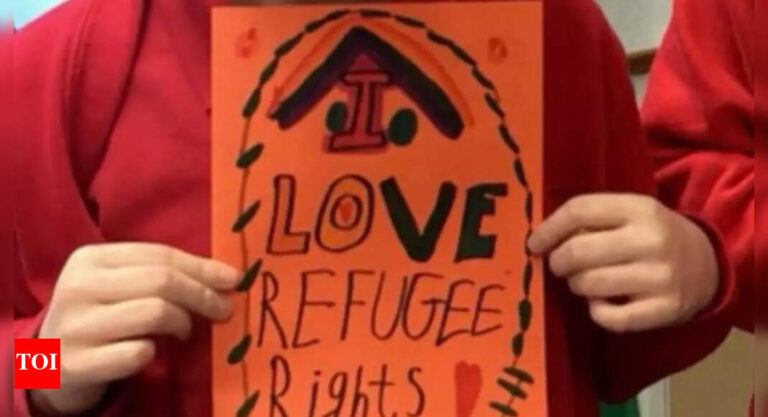 I
LOVE
REFUGEE
Rights
TOI